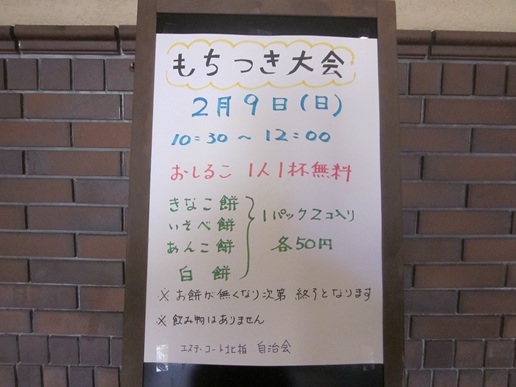 もちつき大会
2月9日(日)
10:30～12:00
おしるこ 1人1杯無料
きなこ餅
いそべ餅
あんこ餅
白餅
1パック2コ入り
各50円
※お餅が無くなり次第 終うとなります
※飲み物はありません
エステ・コート北柏 自治会